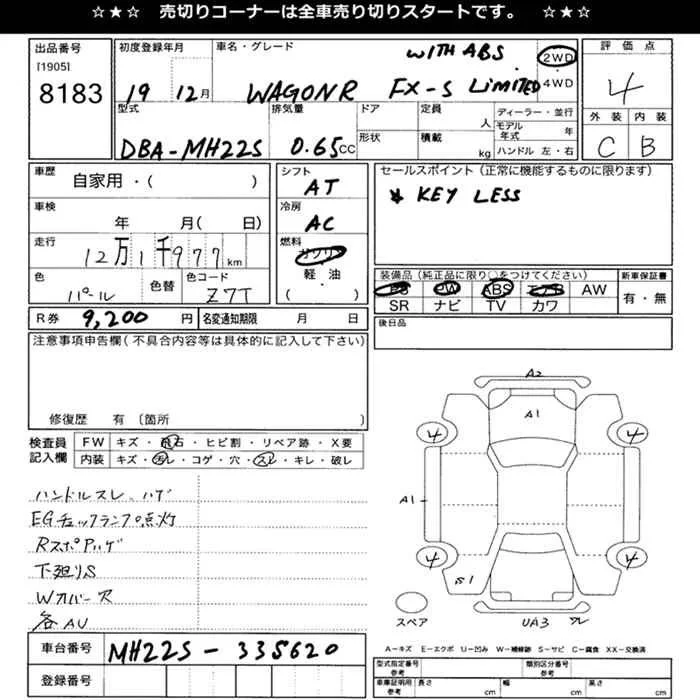 ☆★☆ 売切りコーナーは全車売り切りスタートです。 ☆★☆
出品番号 [1905] 8183
初度登録年月 19 12月
車名・グレード WITH ABS WAGON R FX-S LIMITED
2WD ・ 4WD
評価点 4
外装 内装
C B
型式 DBA-MH22S
排気量 0.65cc
ドア 形状
定員 人
積載 kg
ディーラー・並行
モデル年式 年
ハンドル 左・右
車歴 自家用・( )
シフト AT
セールスポイント(正常に機能するものに限ります)
* KEY LESS
車検 年 月( 日)
冷房 AC
走行 12万1千977km
燃料 ガソリン 軽・油 ( )
色 パール 色替 色コード Z7T
装備品(純正品に限り○をつけてください)
PS PW ABS エアB AW
SR ナビ TV カワ
新車保証書 有・無
R券 9,200円 名変通知期限 月 日
後日品
注意事項申告欄(不具合内容等は具体的に記入して下さい)
修復歴 有〔箇所 〕
検査員記入欄
FW キズ・飛石・ヒビ割・リペア跡・X要
内装 キズ・汚レ・コゲ・穴・スレ・キレ・破レ
ハンドルスレ、ハゲ
EGチェックランプ点灯
RスポPハゲ
下廻りS
Wカバー欠
各AU
A2
A1
4 4
A1
4 4
S1
スペア
UA3
A-キズ E-エクボ U-凹み W-補修跡 S-サビ C-腐食 XX-交換済
車台番号 MH22S-335620
登録番号
型式指定番号 参考
類別区分番号 参考
車庫証明用 参考 長さ cm 幅 cm 高さ cm